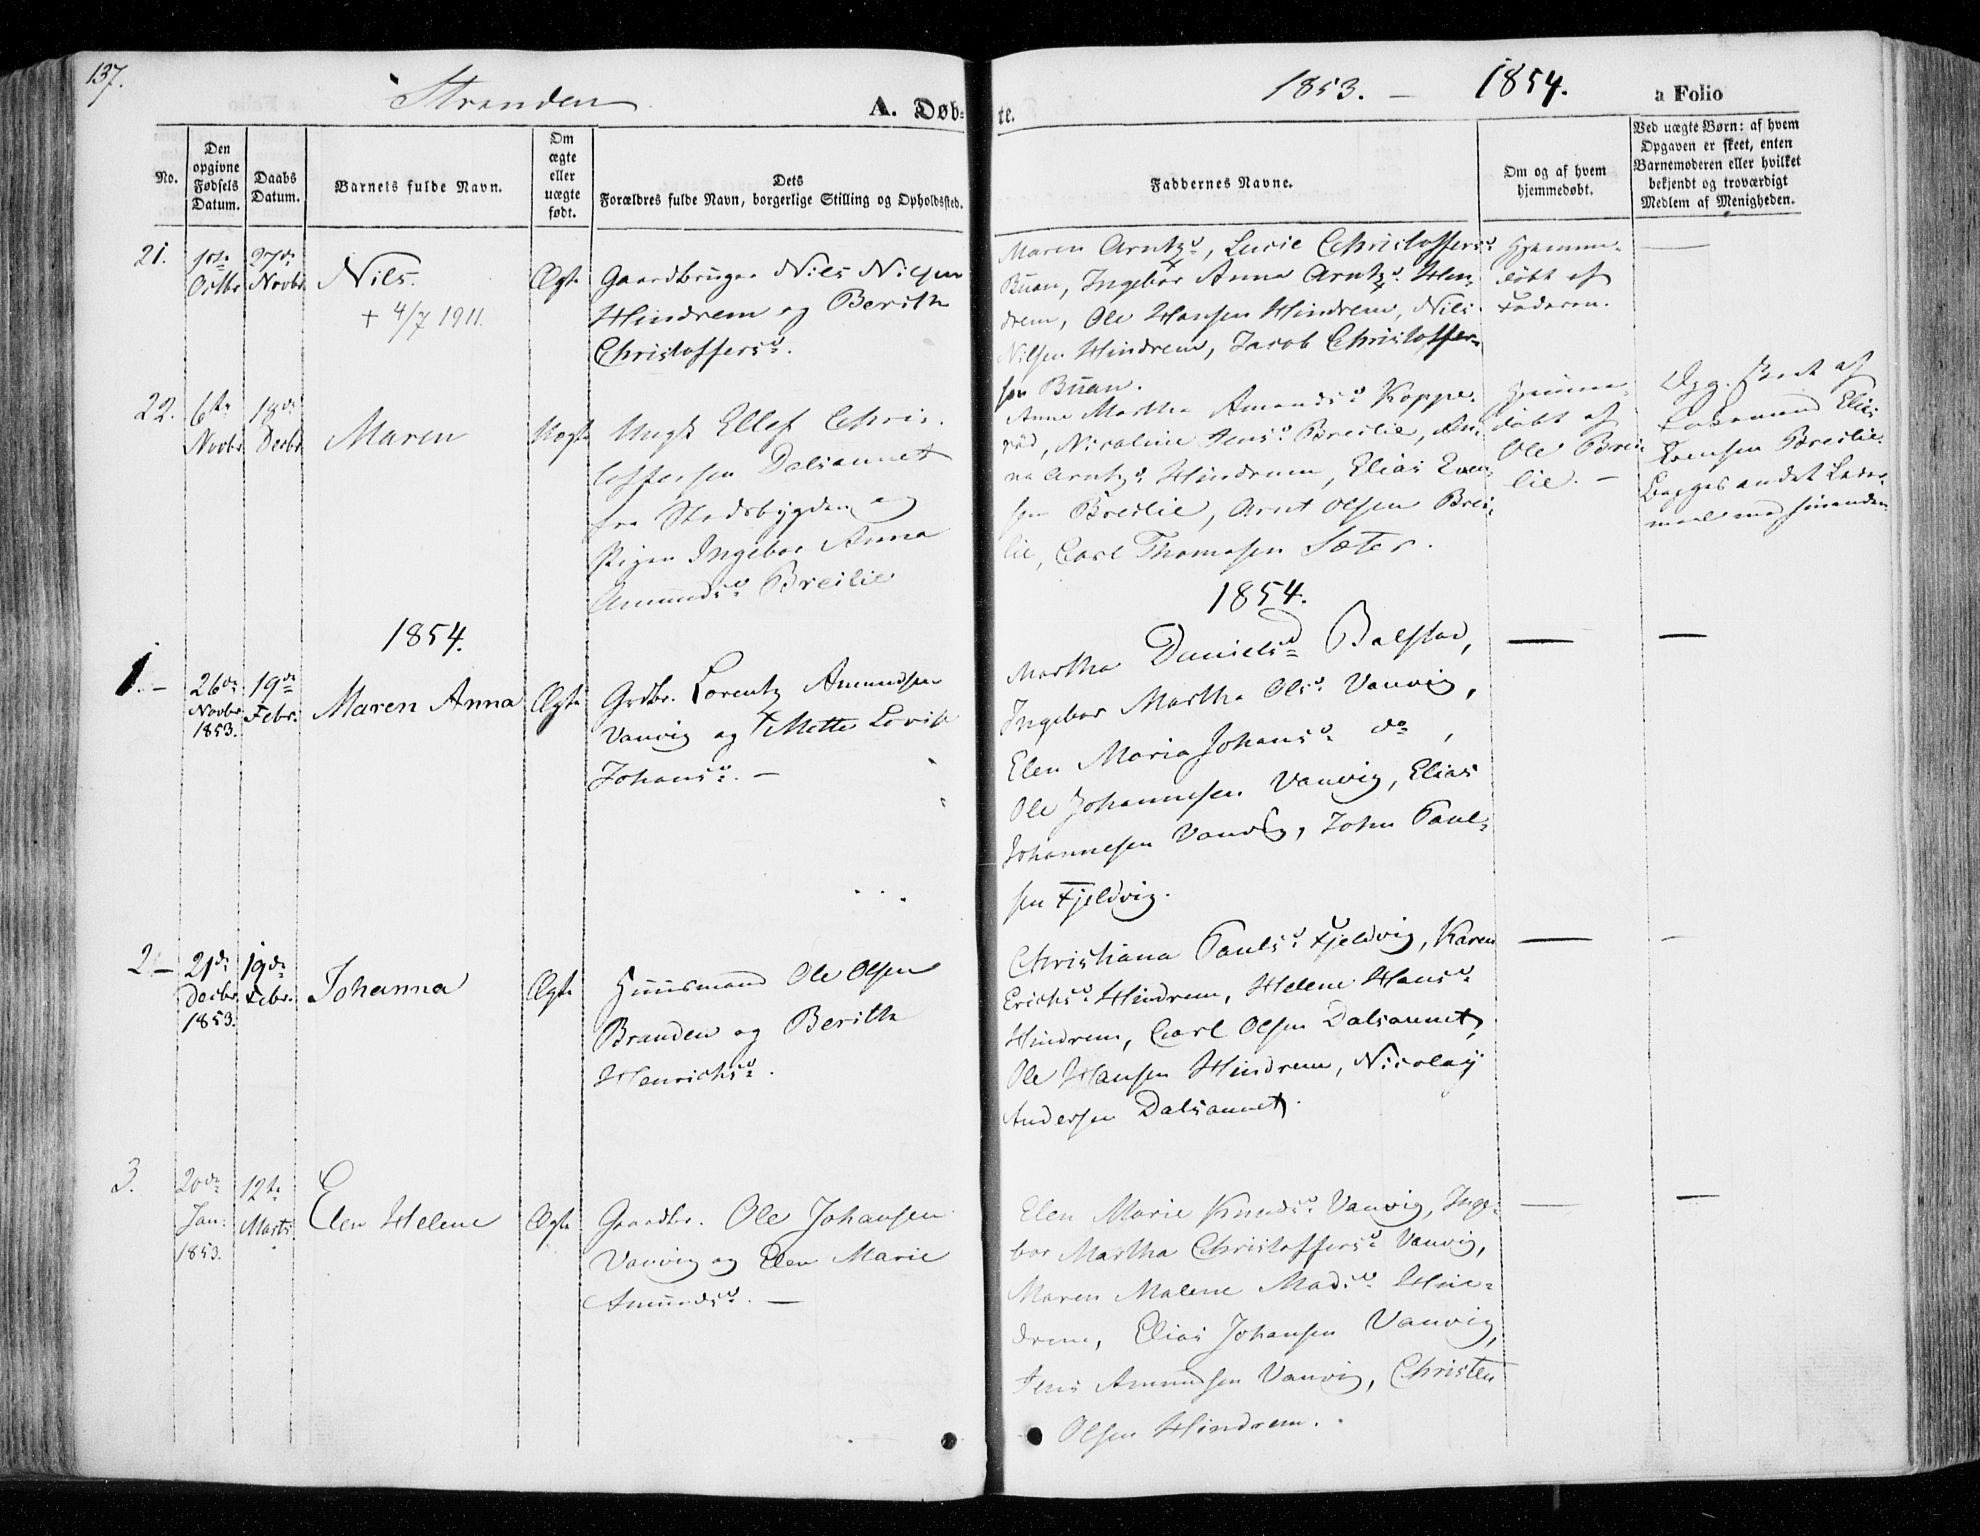 137.
Stranden
A. Døb-
te.
1853. — 1854.
a Folio
No.
Den opgivne Fødsels Datum.
Daabs Datum.
Barnets fulde Navn.
Om ægte eller uægte født.
Dets
Forældres fulde Navn, borgerlige Stilling og Opholdssted.
Faddernes Navne.
Om og af hvem hjemmedøbt.
Ved uægte Børn: af hvem
Opgaven er skeet, enten
Barnemoderen eller hvilket
bekjendt og troværdigt
Medlem af Menigheden.
21.
1ste Octbr
27de Novbr
Nils.
+ 4/7 1911.
Ægte
Gaardbruger Nils Nilsen
Hindrem og Berith
Christoffersd.
Maren Arntzd., Lucie Christoffersd.
Buan, Ingebor Anna Arntzd. Hin-
drem, Ole Hansen Hindrem, Nils
Nilsen Hindrem, Jacob Christoffer-
sen Buan.
Hjemme-
døbt af
Faderen.
—
22.
6te Novbr
18de Decbr
Maren
Uægte
Ungk. Ellef Chris-
toffersen Dalsaunet
fra Stadsbygden og
Pigen Ingebor Anna
Amundsd. Breilie
Anne Martha Amundsd. Koppe-
råd, Nicoline Jensd. Breilie, An-
na Arntzd. Hindrem, Elias Even-
sen Breilie, Arnt Olsen Brei-
lie, Carl Thomasen Sæter.
Hjemme-
døbt af
Ole Brei-
lie. —
Opg. skeet af
Elias
Evensen Breilie.
Begges andet Leier-
maal med hinanden
1854.
1854.
1. —
26de Novbr 1853.
19de Febr.
Maren Anna
Ægte
Grdbr. Lorentz Amundsen
Vanvig og Mette Lovise
Johansd. —
Martha Danielsd. Balstad,
Ingebor Martha Olsd. Vanvig,
Elen Maria Johansd. do,
Ole Johannesen Vanvig, Elias
Johannesen Vanvig, John Paul-
sen Fjeldvig.
—
—
2. —
21de Decbr 1853.
19de Febr.
Johanna
Ægte
Huusmand Ole Olsen
Branden og Berith
Henrichsd.
Christiana Paulsd. Fjeldvig, Karen
Erichsd. Hindrem, Helene Hansd.
Hindrem, Carl Olsen Dalsaunet,
Ole Hansen Hindrem, Nicolay
Andersen Dalsaunet.
—
—
3.
20de Jan: 1853.
12te Marts
Elen Helene
Ægte
Gaardbr. Ole Johansen
Vanvig og Elen Marie
Amundsd. —
Elen Marie Knudsd. Vanvig, Inge-
bor Martha Christoffersd. Vanvig,
Maren Malene Madsd. Hin-
drem, Elias Johansen Vanvig,
Jens Amundsen Vanvig, Christen
Olsen Hindrem.
—
—